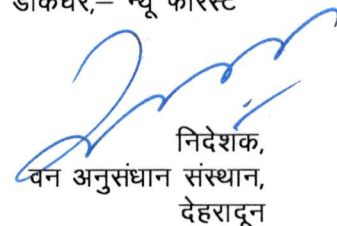 डाकघर,– न्यू फॉरेस्ट
निदेशक,
वन अनुसंधान संस्थान,
देहरादून